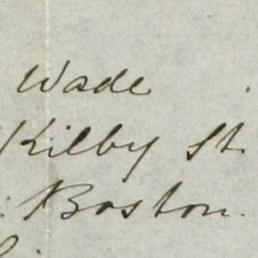 Wade
Kilby St.
Boston.